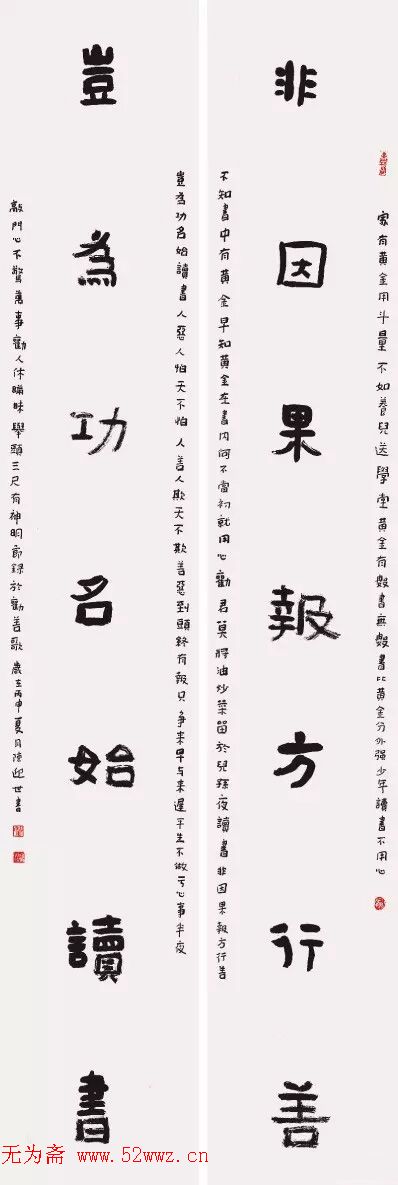 家有黃金用斗量不如養兒送學堂黃金有數書無數書比黃金分外强少年讀書不用心
非因果報方行善
不知書中有黃金早知黃金在書內何不當初就用心勸君莫將油炒菜留於兒孫夜讀書非因果報方行善
豈為功名始讀書人惡人怕天不怕人善人欺天不欺善惡到頭終有報只爭來早与來遲平生不做亏心事半夜
豈為功名始讀書
敲門心不驚萬事勸人休瞞昧舉頭三尺有神明節錄於勸善歌歲在丙申夏月陳迎世書
无为斋 www.52wwz.cn